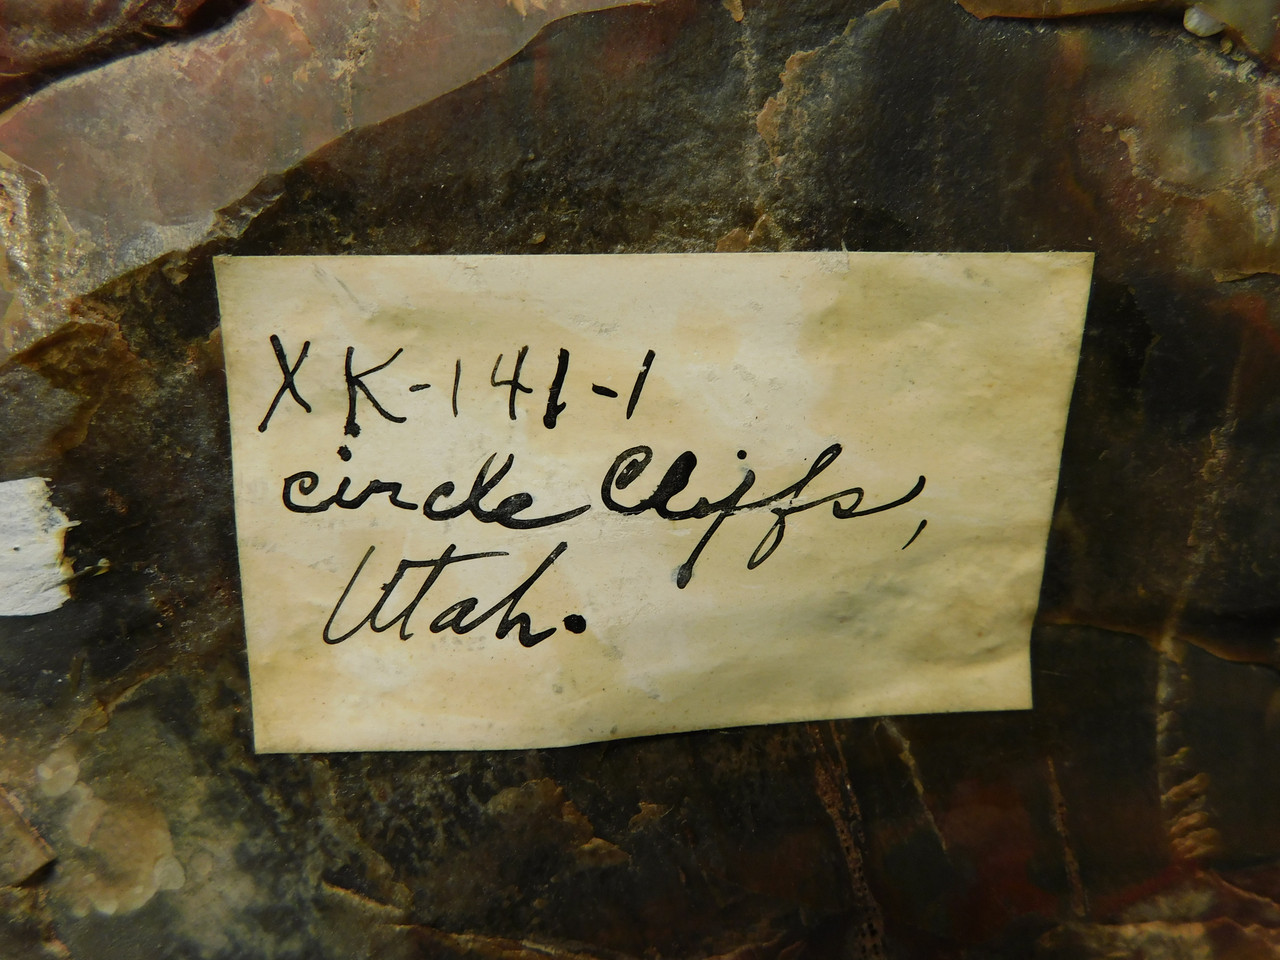 XK-141-1
circle Cliffs,
Utah.